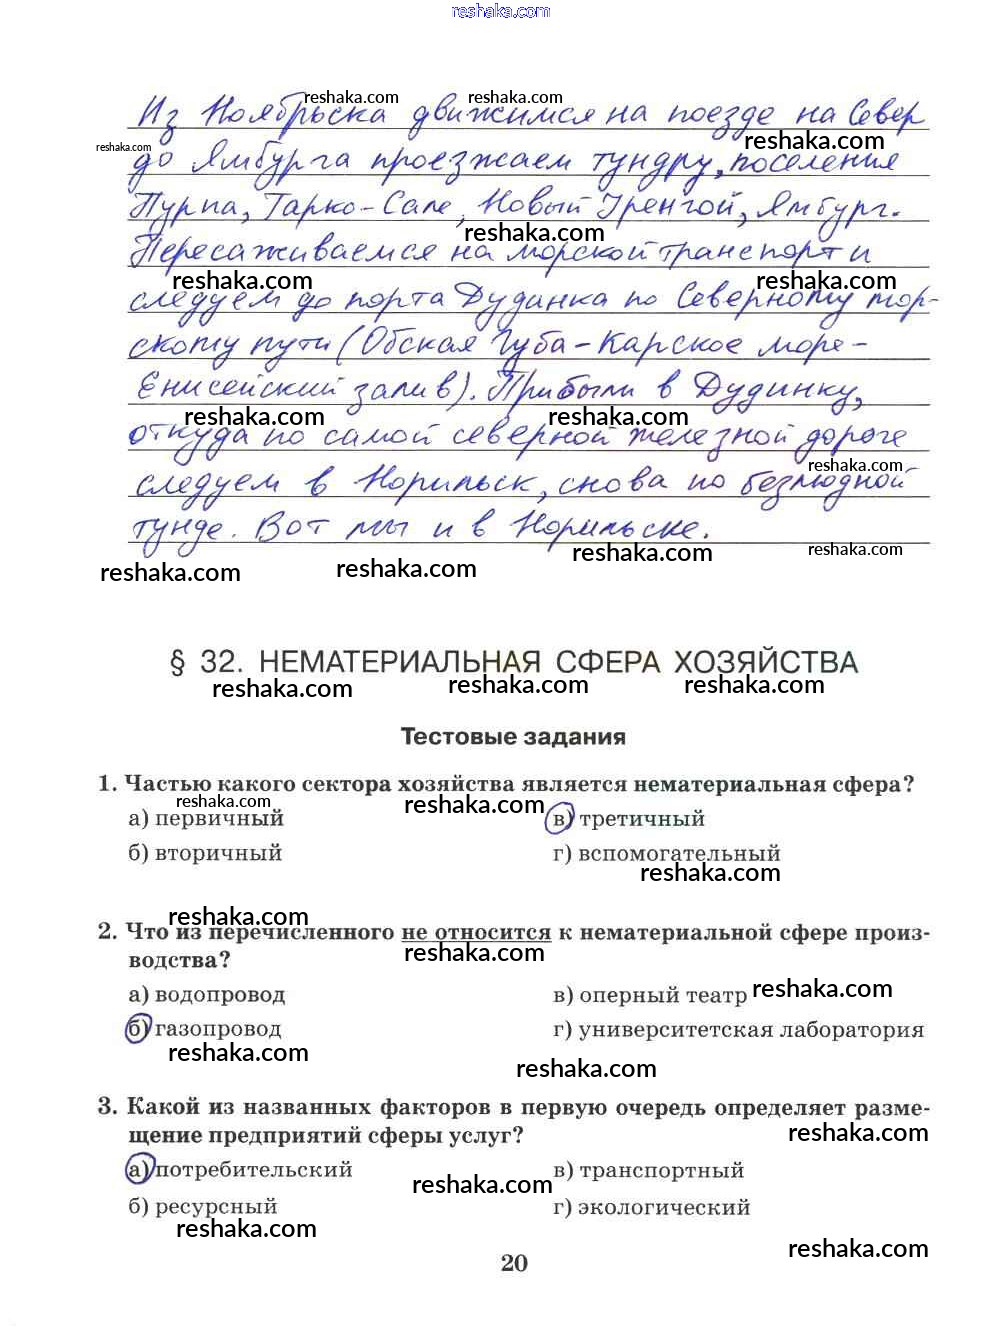 reshaka.com
Из Ноябрьска движимся на поезде на Север
до Ямбурга проезжаем тундру, поселения
Пурпа, Тарко-Сале, Новый Уренгой, Ямбург.
Пересаживаемся на морской транспорт и
следуем до порта Дудинка по Северному мор-
скому пути (Обская Губа-Карское море-
Енисейский залив). Прибыли в Дудинку,
откуда по самой северной железной дороге
следуем в Норильск, снова по безлюдной
тунде. Вот мы и в Норильске.
§ 32. НЕМАТЕРИАЛЬНАЯ СФЕРА ХОЗЯЙСТВА
Тестовые задания
1. Частью какого сектора хозяйства является нематериальная сфера?
а) первичный
в) третичный
б) вторичный
г) вспомогательный
2. Что из перечисленного не относится к нематериальной сфере произ-
водства?
а) водопровод
в) оперный театр
б) газопровод
г) университетская лаборатория
3. Какой из названных факторов в первую очередь определяет разме-
щение предприятий сферы услуг?
а) потребительский
в) транспортный
б) ресурсный
г) экологический
20